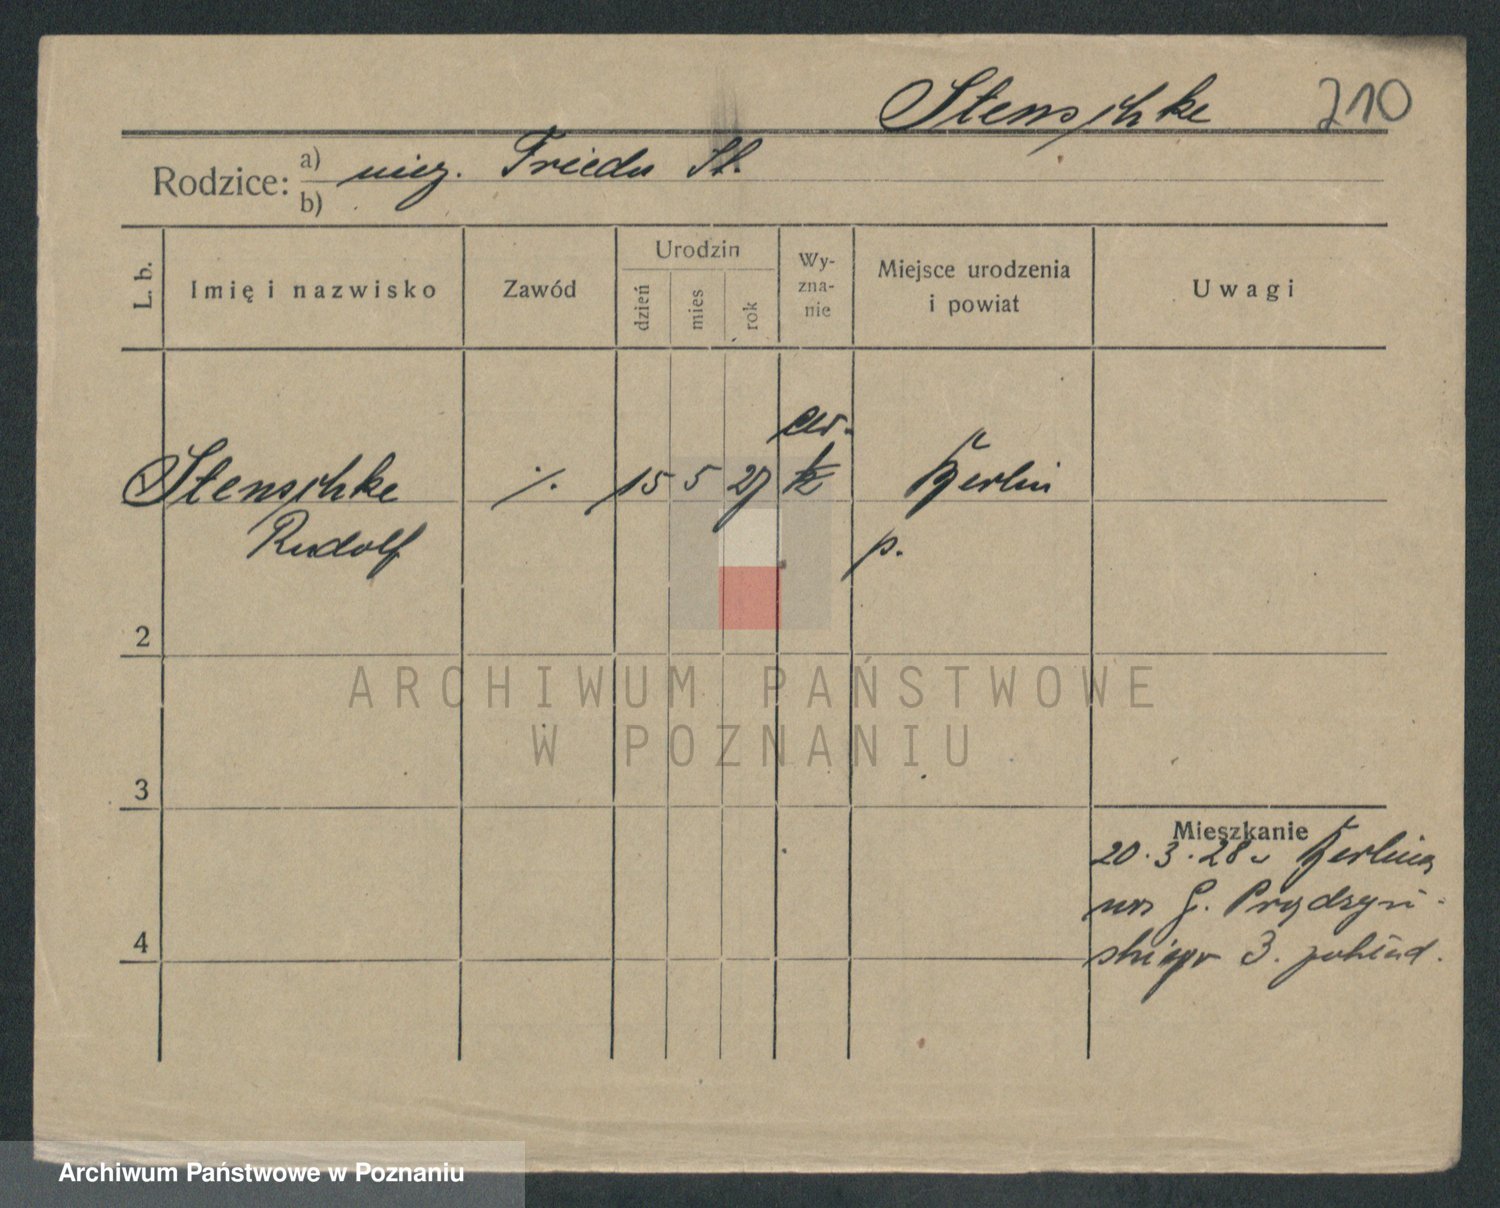 Stenschke 210
Rodzice: a) niez. Frieda St.
b)
L. b.
Imię i nazwisko
Zawód
Urodzin
dzień
mies
rok
Wy-
zna-
nie
Miejsce urodzenia
i powiat
Uwagi
ew.
Stenschke ·/. 15 5 27 k Berlin
Rudolf p.
2
3
4
Mieszkanie
20.3.28 z Berlina
na G. Prądzyń-
skiego 3.
ARCHIWUM PAŃSTWOWE
W POZNANIU
Archiwum Państwowe w Poznaniu